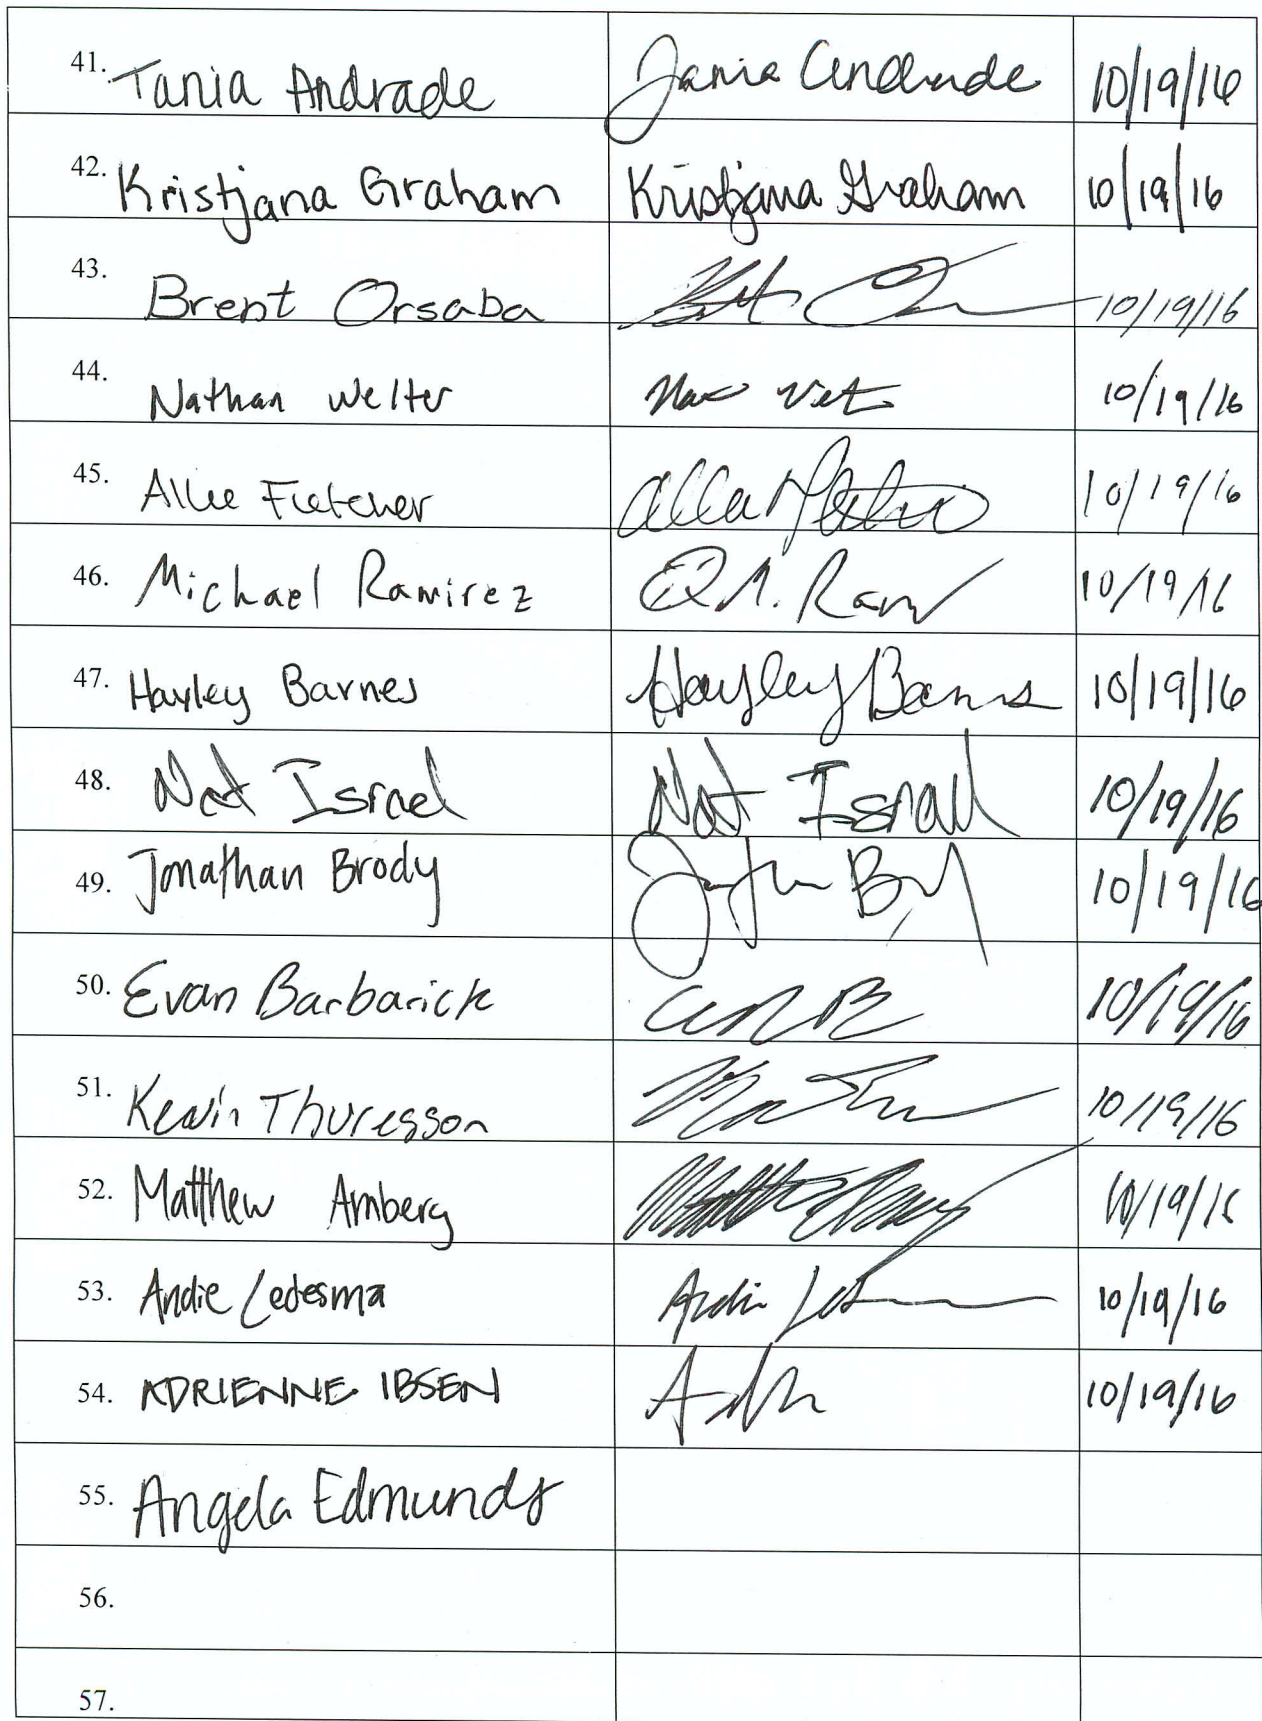 41. Tania Andrade Tania Andrade 10/19/16
42. Kristjana Graham Kristjana Graham 10/19/16
43. Brent Orsaba 10/19/16
44. Nathan Welter 10/19/16
45. Allie Fletcher 10/19/16
46. Michael Ramirez 10/19/16
47. Hayley Barnes Hayley Barnes 10/19/16
48. Nat Israel Nat Israel 10/19/16
49. Jonathan Brody 10/19/16
50. Evan Barbarick 10/19/16
51. Kevin Thuresson 10/19/16
52. Matthew Amberg 10/19/16
53. Andie Ledesma 10/19/16
54. ADRIENNE IBSEN 10/19/16
55. Angela Edmunds
56.
57.